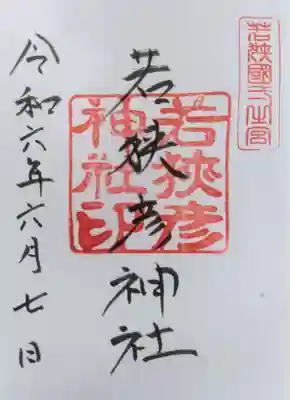 若狭國一之宮
若狭彦神社
若狭彦
神社印
令和六年六月七日